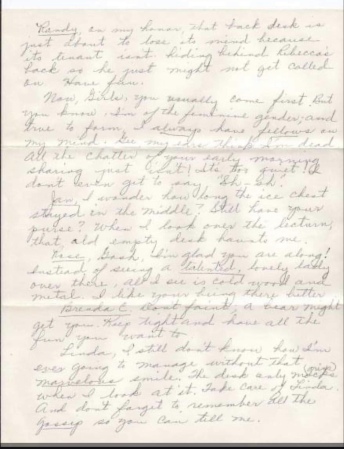 "Randy, on my honor, that back desk is
just about to lose its mind because
its tenant isn't hiding behind Rebecca's
back so he just might not get called
on. Have fun.
Now, Girls, you usually come first But
you know I'm of the feminine gender; and
true to form, I always have fellows on
my mind. See my ears think I'm dead
All the chatter of your early morning
sharing just isn't! It's too quiet! I
don't even get to say, "Sh-Sh.
Jan, I wonder how long the ice chest
stayed in the middle? Still have your
purse? When I look over the lecturn,
that old empty desk haunts me.
Rose, Gosh, I'm glad you are along!
Instead of seeing a talented, lovely lady
over there, all I see is cold wood and
metal. I like your being there better
Brenda C. Don't faint, a bear might
get you. Keep tight and have all the
fun you want to
Linda, I still don't know how I'm
ever going to manage without that
marvelous smile. The desk only mocks (grins)
when I look at it. Take care of Linda.
And don't forget to remember all the
gossip so you can tell me.